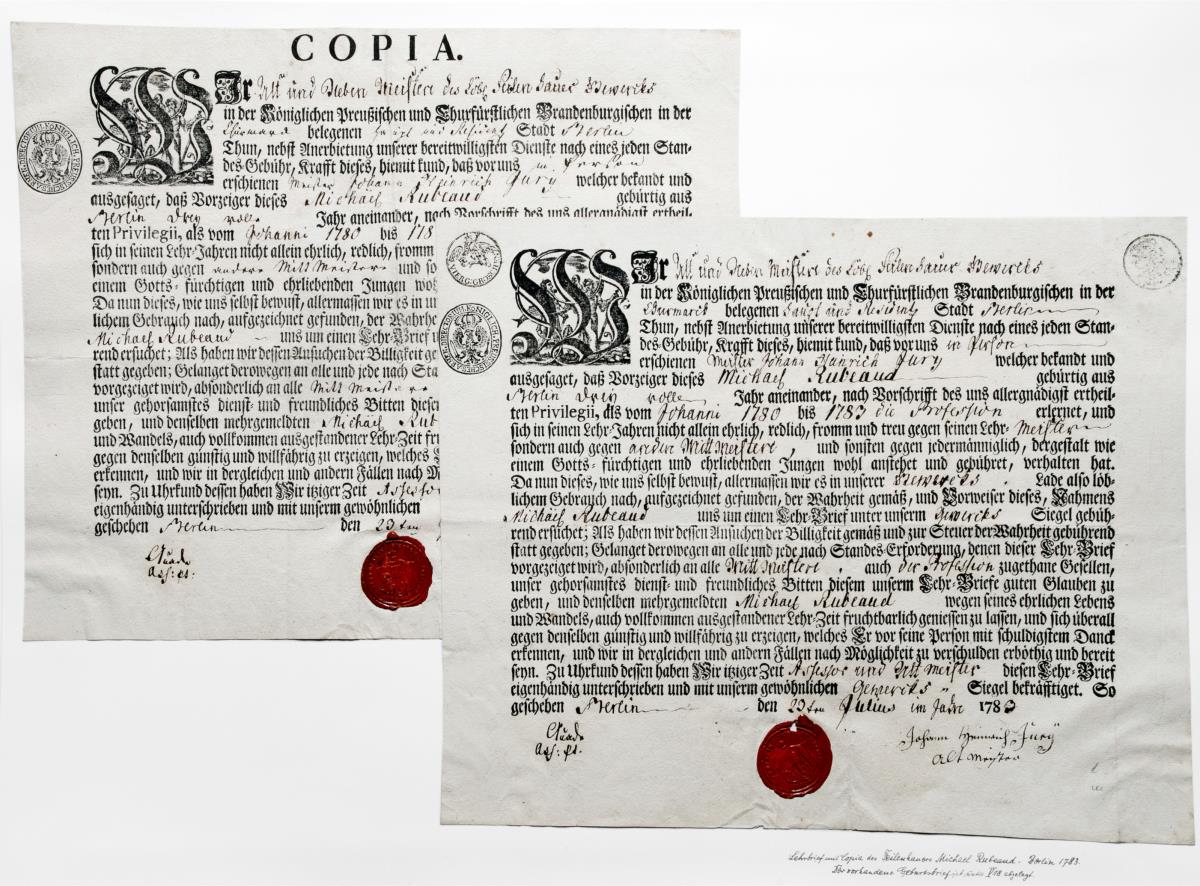 COPIA.
WIr Alt und Neben Meistere des Löbl. Feilen Hauer Gewercks
in der Königlichen Preußischen und Churfürstlichen Brandenburgischen in der
Churmarck belegenen Haupt und Residentz Stadt Berlin
Thun, nebst Anerbietung unserer bereitwilligsten Dienste nach eines jeden Stan-
des Gebühr, Krafft dieses, hiemit kund, daß vor uns in Person
erschienen Meister Johann Heinrich Jury welcher bekandt und
ausgesaget, daß Vorzeiger dieses Michael Rubeaud gebürtig aus
Berlin drey volle Jahr aneinander, nach Vorschrifft des uns allergnädigst ertheil-
ten Privilegii, als vom Johanni 1780 bis 178
sich in seinen Lehr-Jahren nicht allein ehrlich, redlich, fromm
sondern auch gegen andere Mitt Meistere und so
einem Gotts-fürchtigen und ehrliebenden Jungen woh
Da nun dieses, wie uns selbst bewust, allermassen wir es in un
lichem Gebrauch nach, aufgezeichnet gefunden, der Wahrhe
Michael Rubeaud uns um einen Lehr-Brief u
rend ersuchet; Als haben wir dessen Ansuchen der Billigkeit ge
statt gegeben; Gelanget derowegen an alle und jede nach Sta
vorgezeiget wird, absonderlich an alle Mitt Meistere
unser gehorsamstes dienst- und freundliches Bitten diesen
geben, und denselben mehrgemeldten Michael Rub
und Wandels, auch vollkommen ausgestandener Lehr-Zeit fru
gegen denselben günstig und willfährig zu erzeigen, welches E
erkennen, und wir in dergleichen und andern Fällen nach M
seyn. Zu Uhrkund dessen haben Wir itziger Zeit Assessor
eigenhändig unterschrieben und mit unserm gewöhnlichen
geschehen Berlin den 23ten
Quade
Ass: pt.
WIr Alt und Neben Meistere des Löbl. Feilen Hauer Gewercks
in der Königlichen Preußischen und Churfürstlichen Brandenburgischen in der
Churmarck belegenen Haupt und Residentz Stadt Berlin
Thun, nebst Anerbietung unserer bereitwilligsten Dienste nach eines jeden Stan-
des Gebühr, Krafft dieses, hiemit kund, daß vor uns in Person
erschienen Meister Johann Heinrich Jury welcher bekandt und
ausgesaget, daß Vorzeiger dieses Michael Rubeaud gebürtig aus
Berlin drey volle Jahr aneinander, nach Vorschrifft des uns allergnädigst ertheil-
ten Privilegii, als vom Johanni 1780 bis 1783 die Profession erlernet, und
sich in seinen Lehr-Jahren nicht allein ehrlich, redlich, fromm und treu gegen seinen Lehr-Meister
sondern auch gegen andere Mitt Meistere, und sonsten gegen jedermänniglich, dergestalt wie
einem Gotts-fürchtigen und ehrliebenden Jungen wohl anstehet und gebühret, verhalten hat.
Da nun dieses, wie uns selbst bewust, allermassen wir es in unserer Gewercks Lade also löb-
lichem Gebrauch nach, aufgezeichnet gefunden, der Wahrheit gemäß, und Vorweiser dieses, Nahmens
Michael Rubeaud uns um einen Lehr-Brief unter unserm Gewercks Siegel gebüh-
rend ersuchet; Als haben wir dessen Ansuchen der Billigkeit gemäß und zur Steuer der Wahrheit gebührend
statt gegeben; Gelanget derowegen an alle und jede nach Standes-Erforderung, denen dieser Lehr-Brief
vorgezeiget wird, absonderlich an alle Mitt Meistere, auch der Profession zugethane Gesellen,
unser gehorsamstes dienst- und freundliches Bitten diesem unserm Lehr-Briefe guten Glauben zu
geben, und denselben mehrgemeldten Michael Rubeaud wegen seines ehrlichen Lebens
und Wandels, auch vollkommen ausgestandener Lehr-Zeit fruchtbarlich geniessen zu lassen, und sich überall
gegen denselben günstig und willfährig zu erzeigen, welches Er vor seine Person mit schuldigstem Danck
erkennen, und wir in dergleichen und andern Fällen nach Möglichkeit zu verschulden erböthig und bereit
seyn. Zu Uhrkund dessen haben Wir itziger Zeit Assessor und Alt Meister diesen Lehr-Brief
eigenhändig unterschrieben und mit unserm gewöhnlichen Gewercks Siegel bekräfftiget. So
geschehen Berlin den 23ten Julius im Jahre 1783
Quade
Ass: pt.
Johann Heinrich Jury
Alt Meister
Lehrbrief mit Copia des Feilenhauers Michael Rubeaud. Berlin 1783.
Der vorhandene Geburtsbrief ist unter V18 abgelegt.